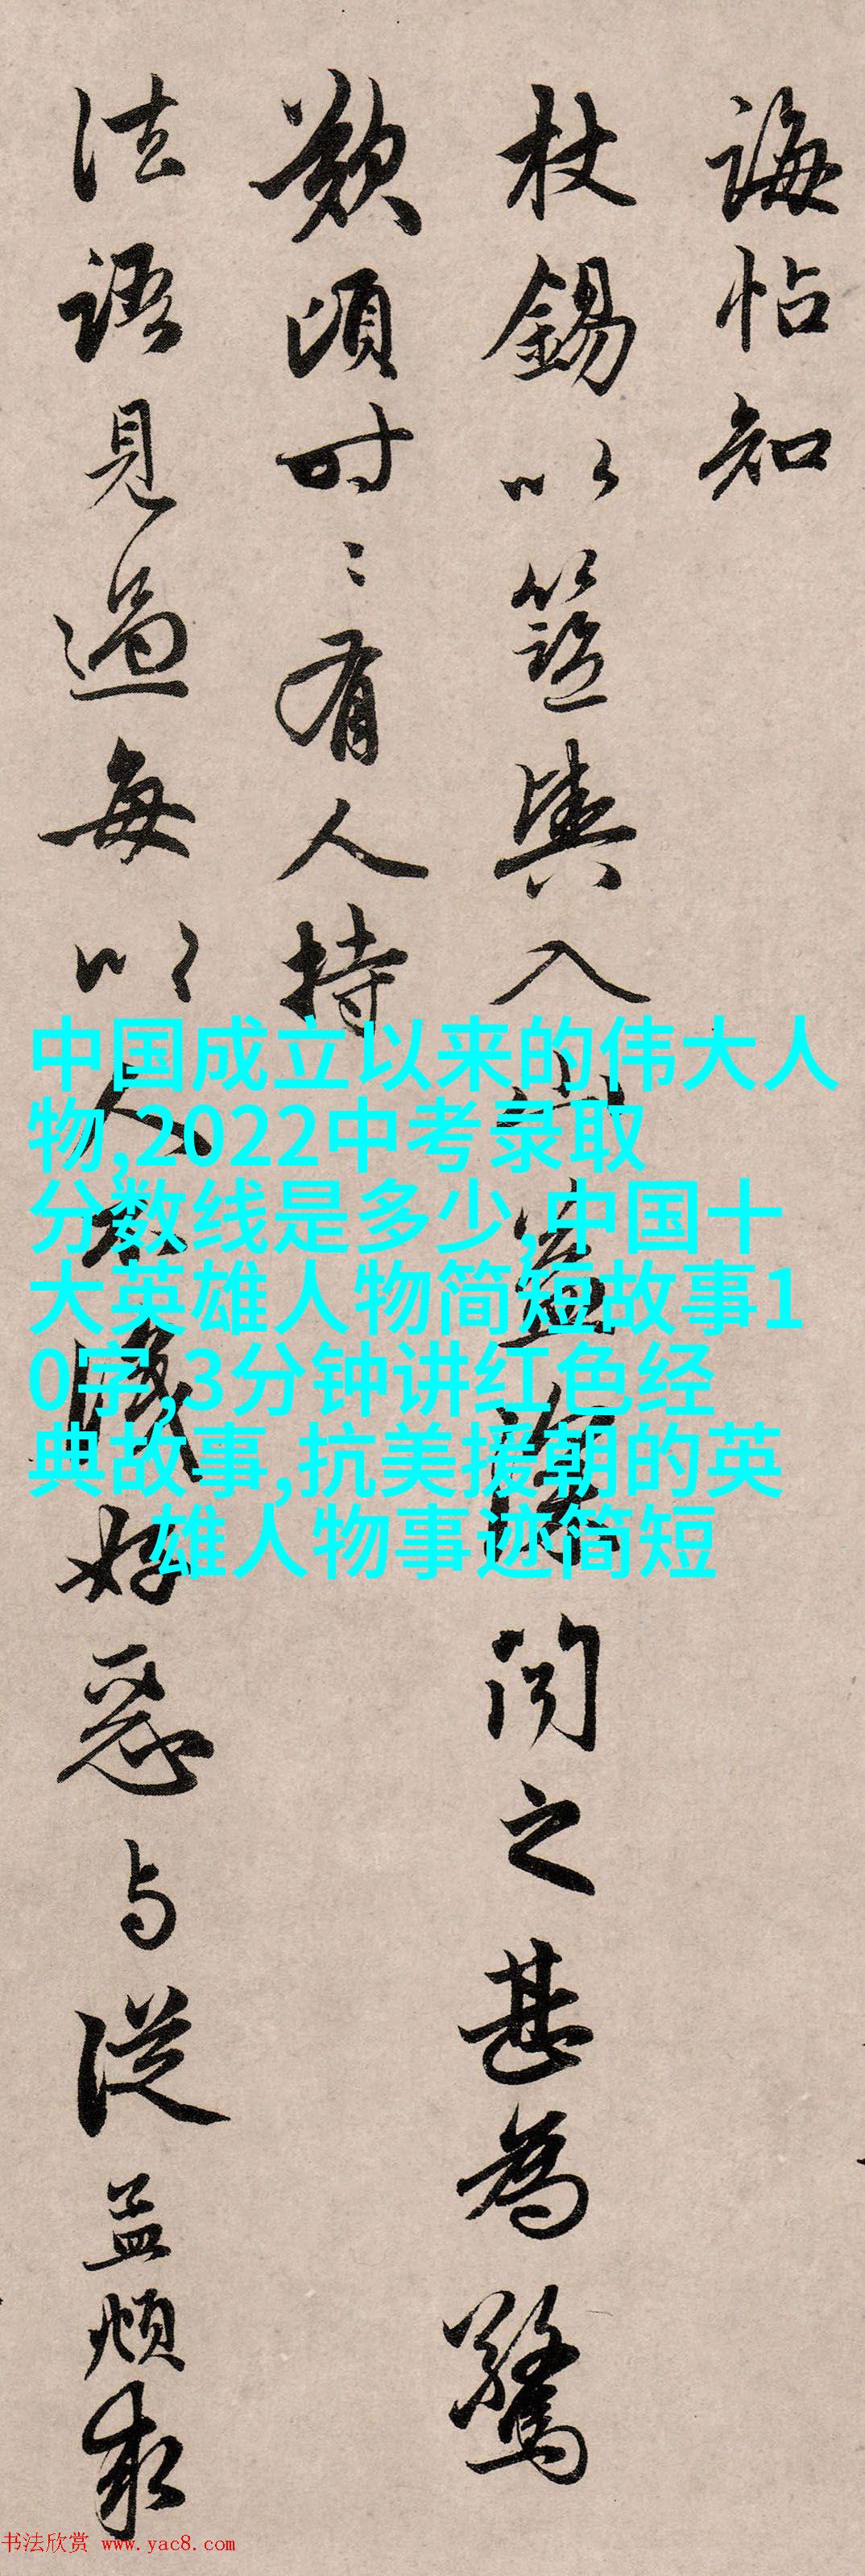 诲帖知
杖锡以篮舆入山益深閴之甚为驚
歎頃时ミ有人持
法語見過每以人
好恶与從益烦
中国成立以来的伟大人
物,2022中考录取
分数线是多少,中国十
大英雄人物简短故事1
0字,3分钟讲红色经
典故事,抗美援朝的英
雄人物事迹简短
书法欣赏 www.yac8.com